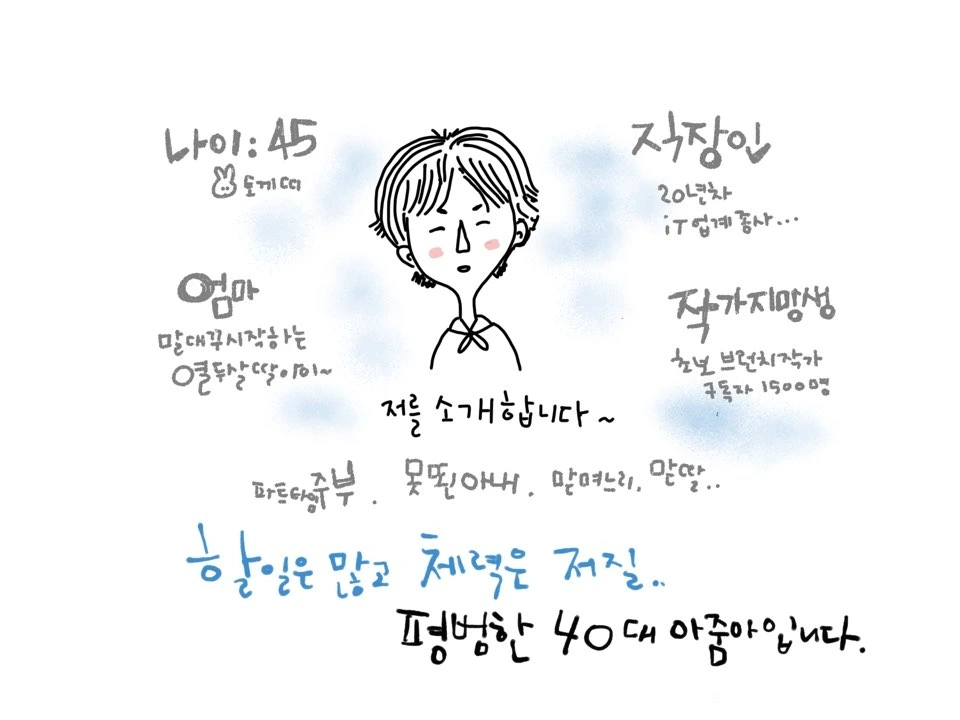 나이: 45
토끼띠
직장인
20년차
iT업계종사...
엄마
말대꾸시작하는
열두살딸아이~
작가지망생
초보 브런치작가
구독자 1500명
저를 소개합니다~
파트타임주부. 못뙨아내. 맏며느리, 맏딸..
할일은 많고 체력은 저질..
평범한 40대 아줌마입니다.